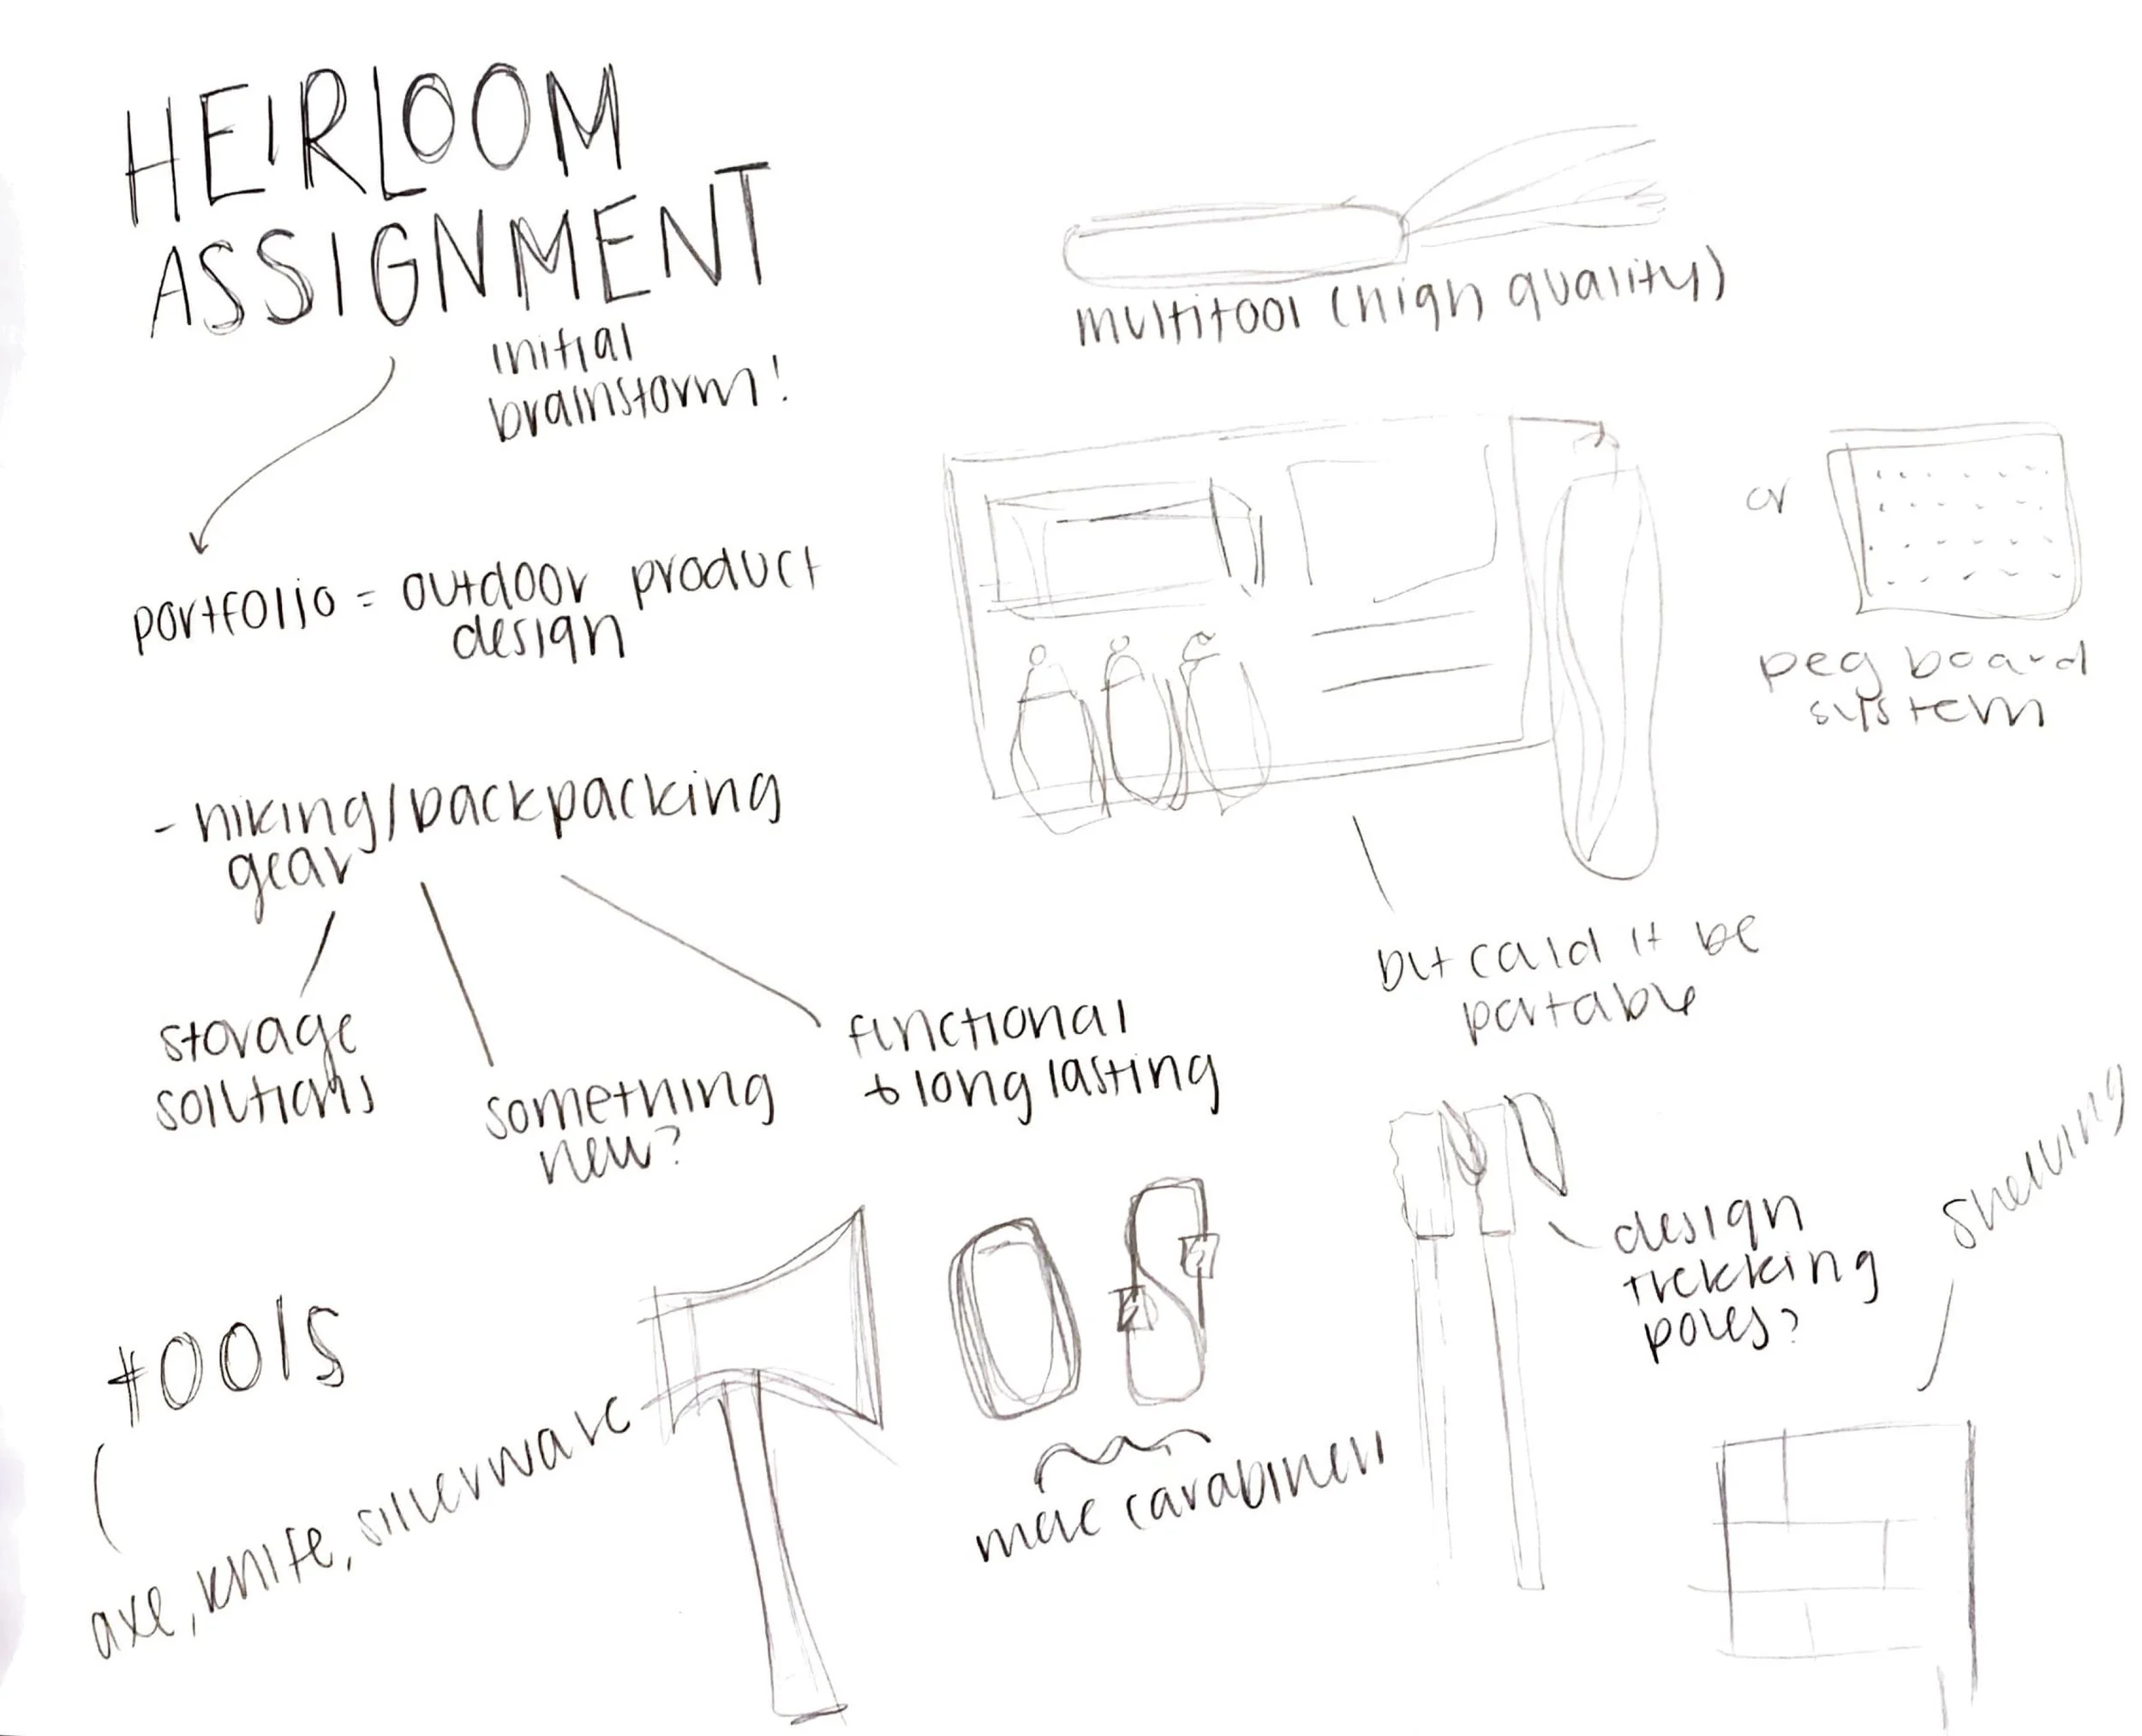 HEIRLOOM
ASSIGNMENT
initial
brainstorm!
portfolio = outdoor product
design
- hiking/backpacking
gear
storage
solutions
something
new?
functional
& long lasting
tools
axe, knife, silverware
multitool (high quality)
or
peg board
system
but could it be
portable
more carabiners
design
trekking
poles?
shelving